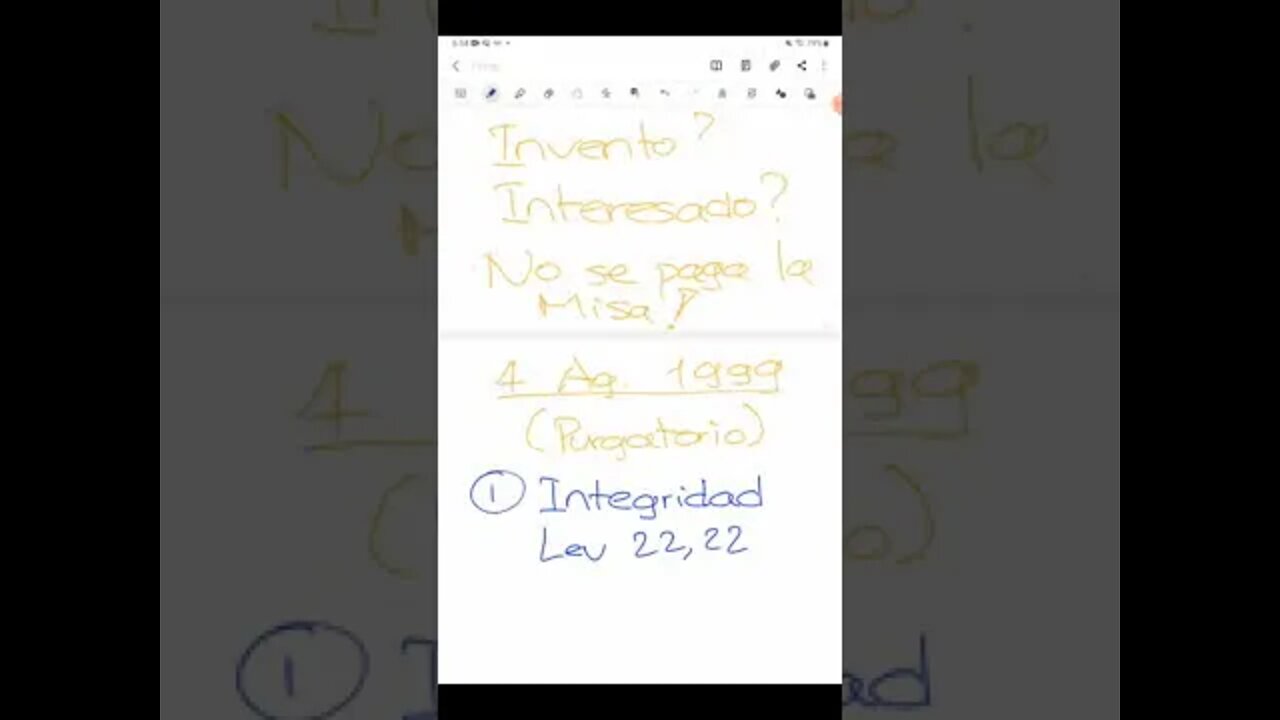 Invento?
Interesado?
No se paga la
Misa!
4 Ag. 1999
(Purgatorio)
1 Integridad
Lev 22,22